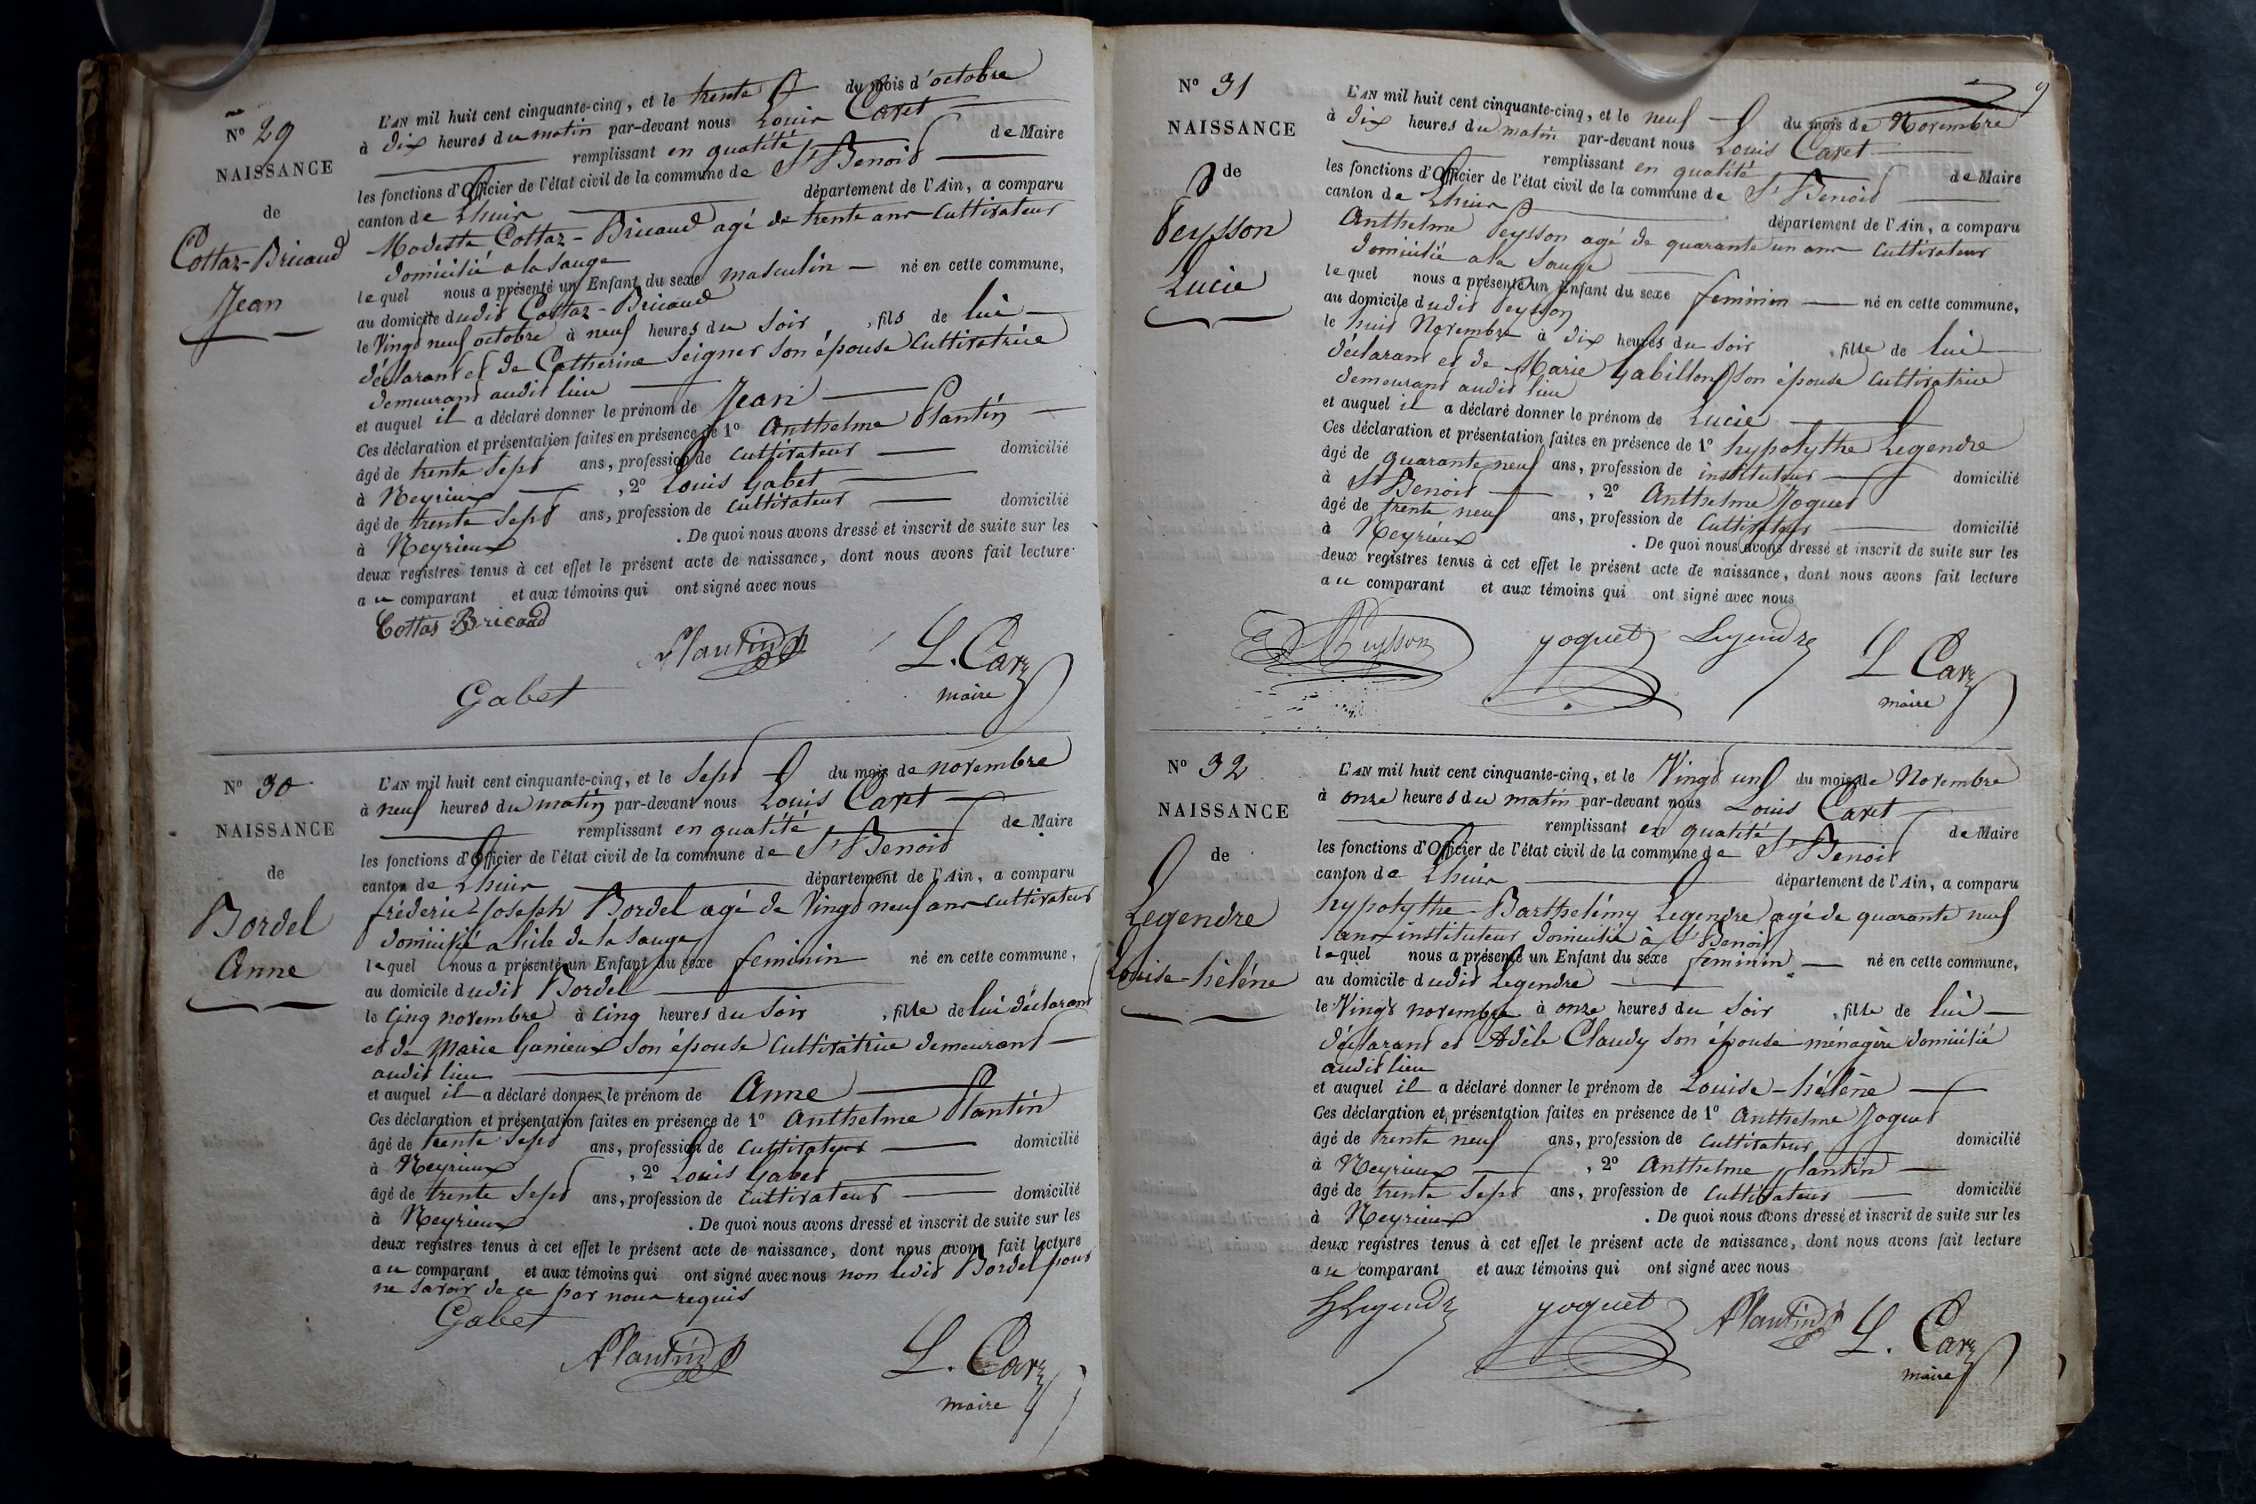 N° 29
NAISSANCE
de
Cottaz-Bricaud
Jean
L'AN mil huit cent cinquante-cinq, et le trente du mois d'octobre
à dix heures du matin par-devant nous Louis Caret
remplissant en qualité de Maire
les fonctions d'Officier de l'état civil de la commune de St Benoit
canton de Lhuis département de l'Ain, a comparu
Modeste Cottaz-Bricaud agé de trente ans cultivateur
domicilié a la Sauge
lequel nous a présenté un Enfant du sexe masculin né en cette commune,
au domicile dudit Cottaz-Bricaud
le Vingt neuf octobre à neuf heures du soir, fils de lui
déclarant et de Catherine Seigner son épouse Cultivatrice
demeurant audit lieu
et auquel il a déclaré donner le prénom de Jean
Ces déclaration et présentation faites en présence de 1° Anthelme Plantin
âgé de trente sept ans, profession de cultivateur domicilié
à Neyrieux, 2° Louis Gabet
âgé de trente sept ans, profession de cultivateur domicilié
à Neyrieux. De quoi nous avons dressé et inscrit de suite sur les
deux registres tenus à cet effet le présent acte de naissance, dont nous avons fait lecture
au comparant et aux témoins qui ont signé avec nous
Cottas Bricaud
Plantin
L. Caret
Gabet
maire
N° 30
NAISSANCE
de
Bordel
Anne
L'AN mil huit cent cinquante-cinq, et le sept du mois de novembre
à neuf heures du matin par-devant nous Louis Caret
remplissant en qualité de Maire
les fonctions d'Officier de l'état civil de la commune de St Benoit
canton de Lhuis département de l'Ain, a comparu
fréderic Joseph Bordel agé de Vingt neuf ans cultivateur
domicilié a l'ile de la Sauge
lequel nous a présenté un Enfant du sexe feminin né en cette commune,
au domicile dudit Bordel
le cinq novembre à cinq heures du soir, fille de lui déclarant
et de Marie Ganieux son épouse cultivatrice demeurant
audit lieu
et auquel il a déclaré donner le prénom de Anne
Ces déclaration et présentation faites en présence de 1° Anthelme Plantin
âgé de trente sept ans, profession de cultivateur domicilié
à Neyrieux, 2° Louis Gabet
âgé de trente sept ans, profession de cultivateur domicilié
à Neyrieux. De quoi nous avons dressé et inscrit de suite sur les
deux registres tenus à cet effet le présent acte de naissance, dont nous avons fait lecture
au comparant et aux témoins qui ont signé avec nous non ledit Bordel pour
ne savoir de ce par nous requis
Gabet
APlantin
L. Caret
maire
9
N° 31
NAISSANCE
de
Peysson
Lucie
L'AN mil huit cent cinquante-cinq, et le neuf du mois de Novembre
à dix heures du matin par-devant nous Louis Caret
remplissant en qualité de Maire
les fonctions d'Officier de l'état civil de la commune de St Benoit
canton de Lhuis département de l'Ain, a comparu
Anthelme Peysson agé de quarante un ans cultivateur
domicilié a la Sauge
lequel nous a présenté un Enfant du sexe feminin né en cette commune,
au domicile dudit Peysson
le huit Novembre à dix heures du soir, fille de lui
déclarant et de Marie Gabillon son épouse cultivatrice
demeurant audit lieu
et auquel il a déclaré donner le prénom de Lucie
Ces déclaration et présentation faites en présence de 1° hypolythe Legendre
âgé de quarante neuf ans, profession de instituteur domicilié
à St Benoit, 2° Anthelme Joguet
âgé de trente neuf ans, profession de cultivateur domicilié
à Neyrieux. De quoi nous avons dressé et inscrit de suite sur les
deux registres tenus à cet effet le présent acte de naissance, dont nous avons fait lecture
au comparant et aux témoins qui ont signé avec nous
Peysson
joguet
Legendre
L Caret
maire
N° 32
NAISSANCE
de
Legendre
Louise-hélène
L'AN mil huit cent cinquante-cinq, et le Vingt un du mois de Novembre
à onze heures du matin par-devant nous Louis Caret
remplissant en qualité de Maire
les fonctions d'Officier de l'état civil de la commune de St Benoit
canton de Lhuis département de l'Ain, a comparu
hypolythe-Barthelémy Legendre agé de quarante neuf
ans instituteur domicilié à St Benoit
lequel nous a présenté un Enfant du sexe feminin né en cette commune,
au domicile dudit Legendre
le Vingt novembre à onze heures du soir, fille de lui
déclarant et Adèle Claudy son épouse ménagère domicilié
audit lieu
et auquel il a déclaré donner le prénom de Louise-hélène
Ces déclaration et présentation faites en présence de 1° Anthelme Joguet
âgé de trente neuf ans, profession de cultivateur domicilié
à Neyrieux, 2° Anthelme plantin
âgé de trente sept ans, profession de cultivateur domicilié
à Neyrieux. De quoi nous avons dressé et inscrit de suite sur les
deux registres tenus à cet effet le présent acte de naissance, dont nous avons fait lecture
au comparant et aux témoins qui ont signé avec nous
HLegendre
joguet
APlantin
L. Caret
maire